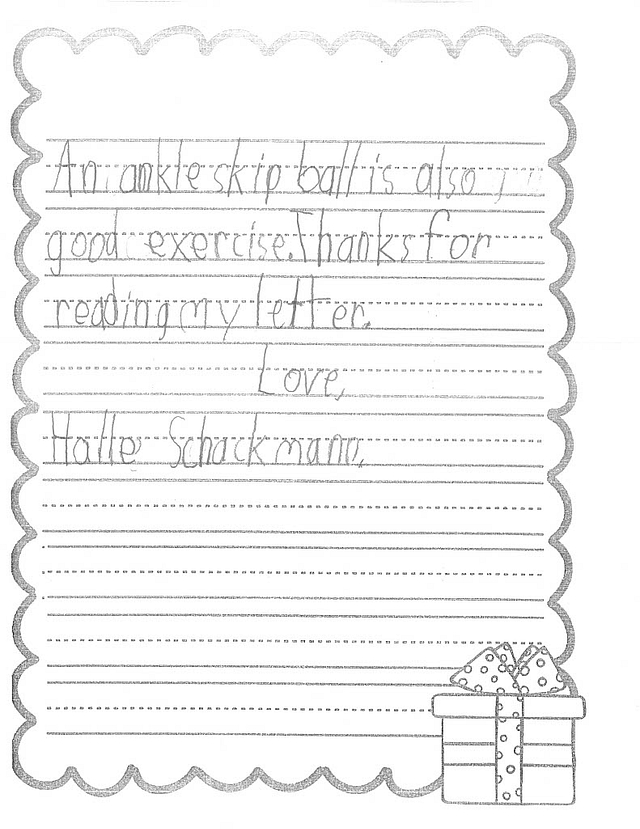 An ankle skip ball is also
good exercise. Thanks for
reading my letter.
Love,
Halle Schackmann.